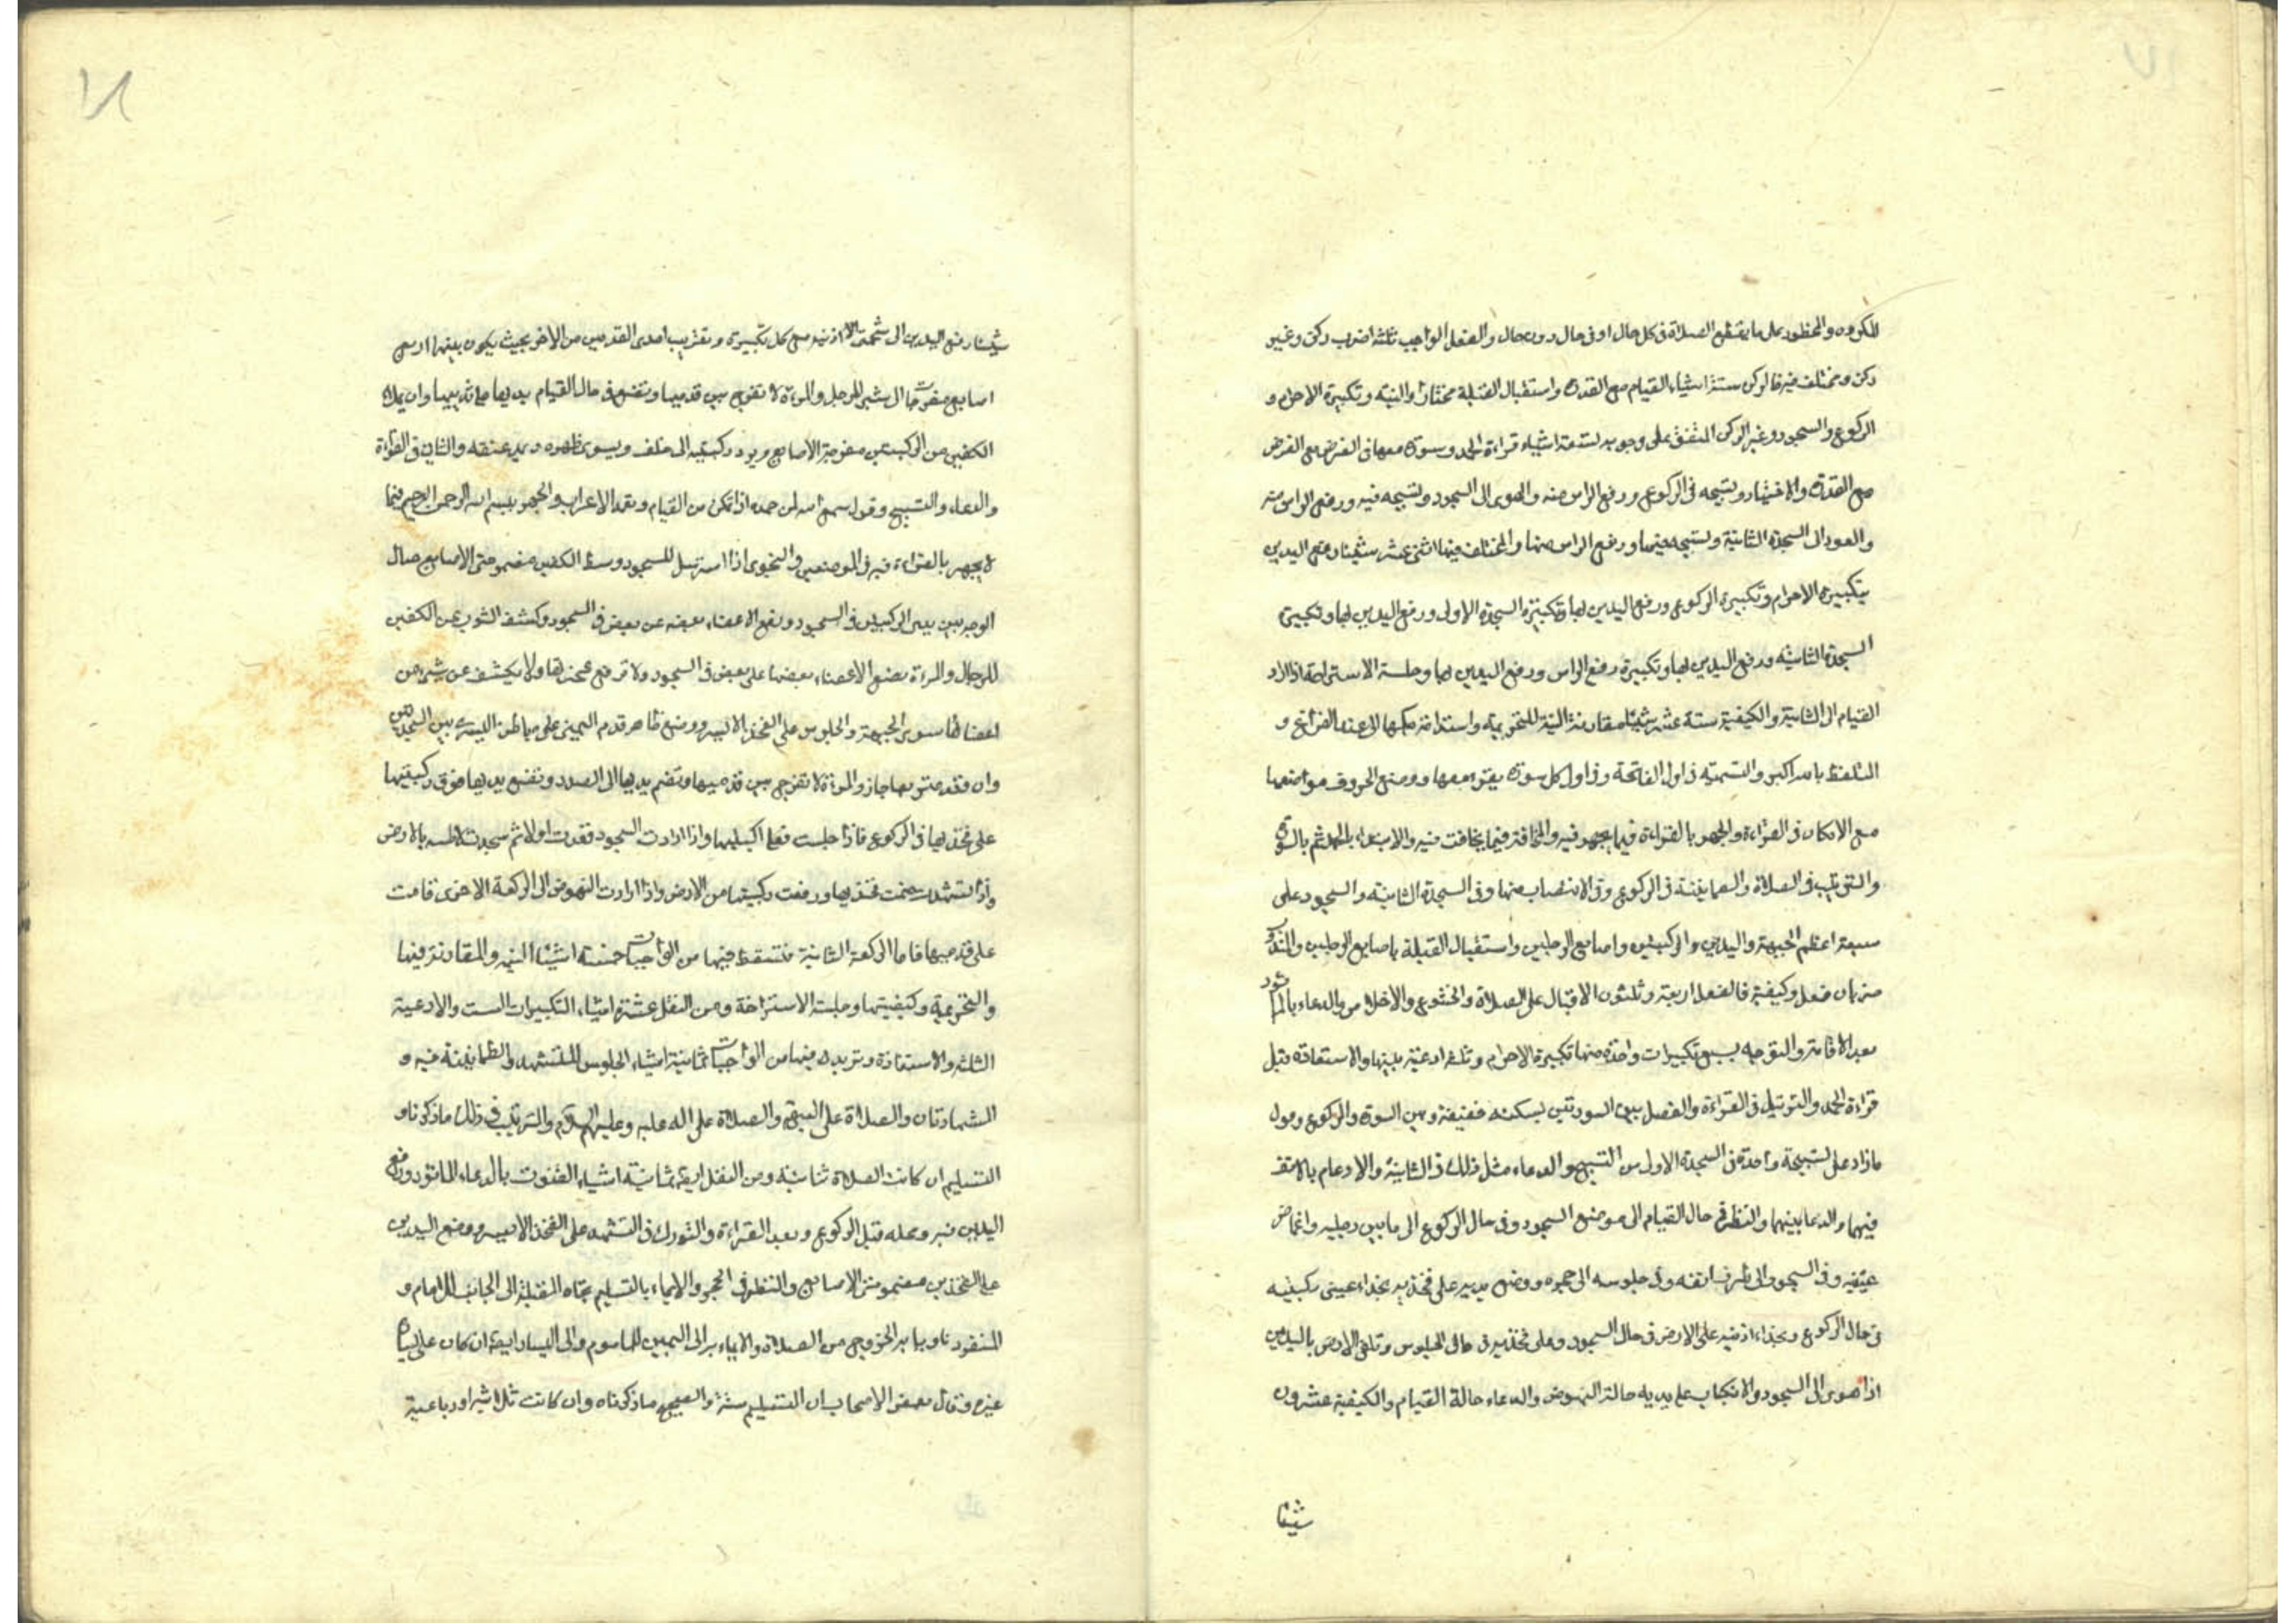 المكروه والمحظور على ما يقطع الصلاة فى كل حال او فى حال دون حال والفعل الواجب ثلثة اضرب ركن وغير
ركن ومختلف فيه فالركن ستة اشياء القيام مع القدرة واستقبال القبلة مختارا والنية وتكبيرة الاحرام و
الركوع والسجود وغير الركن المتفق على وجوبه تسعة اشياء قراءة الحمد وسورة معها فى الفرض
مع القدرة والاختيار وتسبيحه فى الركوع ورفع الراس منه والهوى الى السجود وتسبيحه فيه ورفع الراس منه
والعود الى السجدة الثانية وتسبيحه فيها ورفع الراس منها والمختلف فيها اثنى عشر شيئا رفع اليدين
بتكبيرة الاحرام وتكبيرة الركوع ورفع اليدين لها وتكبيرة السجدة الاولى ورفع اليدين لها وتكبيرة
السجدة الثانية ورفع اليدين لها وتكبيرة رفع الراس ورفع اليدين لها وجلسة الاستراحة اذا اراد
القيام الى الثانية والكيفية ستة عشر شيئا مقارنة النية للتحريمة واستدامة حكمها الى عند الفراغ و
التلفظ بالله اكبر والتسمية فى اول الفاتحة وفى اول كل سورة يقرء معها ووضع الحروف مواضعها
مع الامكان فى القراءة والجهر بالقراءة فيما يجهر فيه والمخافتة فيما يخافت فيه والابتداء بالحمد ثم بالسورة
والترتيب فى الصلاة والطمانينة فى الركوع وفى الانتصاب منها وفى السجدة الثانية والسجود على
سبعة اعظم الجبهة واليدين والركبتين واصابع الرجلين واستقبال القبلة باصابع الرجلين والمندوب
ضربان فعل وكيفية فالفعل اربعة وثلثون الاقبال على الصلاة والخشوع والاخلاص والدعاء بالماثور
بعد الاقامة والتوجه بسبع تكبيرات واحدة منها تكبيرة الاحرام وثلثة ادعية بينها والاستعاذة قبل
قراءة الحمد والترتيل فى القراءة والفصل بين السورتين بسكتة خفيفة وبين السورة والركوع وقول
مازاد على تسبيحة واحدة فى السجدة الاولى من التسبيح والدعاء مثل ذلك فى الثانية والارغام بالانف
فيهما والدعا بينهما والنظر فى حال القيام الى موضع السجود وفى حال الركوع الى ما بين رجليه واغماض
عينيه وفى السجود الى طرف انفه وفى جلوسه الى حجره ووضع يديه على فخذيه بحذاء عينى ركبتيه
فى حال الركوع وبحذاء اذنيه على الارض فى حال السجود وعلى فخذيه فى حال الجلوس وتلقى الارض باليدين
اذا هوى الى السجود والانكباب على يديه حالة النهوض والدعاء حالة القيام والكيفية عشرون
شيئا
١٨
شيئا رفع اليدين الى شحمتى الاذنين مع كل تكبيرة وتقريب احدى القدمين من الاخر بحيث يكون بينهما اربع
اصابع مفرجات الى شبر للرجل والمرءة لا تفرج بين قدميها وتضع فى حال القيام يديها على ثدييها وان يملاء
الكفين من الركبتين مفرجة الاصابع ويرد ركبتيه الى خلف ويسوى ظهره ويمد عنقه والتانى فى القراءة
والدعاء والتسبيح وقول سمع الله لمن حمده اذا تمكن من القيام وتعمد الاعراب والجهر ببسم الله الرحمن الرحيم فيما
لا يجهر بالقراءة فيه فى الموضعين والتخوى اذا استرسل للسجود وبسط الكفين مضمومتى الاصابع حيال
الوجه بين يدى الركبتين فى السجود ورفع الاعضاء بعضه عن بعض فى السجود وكشف الثوب عن الكفين
للرجال والمرءة تضع الاعضاء بعضها على بعض فى السجود ولا ترفع عجزتها ولا يكشف عن شيء من
اعضائها سوى الجبهة والجلوس على الفخذ الايسر ووضع ظاهر قدم اليمنى على باطن اليسرى بين السجدتين
وان قعد متربعا جاز والمرءة لا تفرج بين قدميها وتضم يديها الى الصدر وتضع يديها فوق ركبتيها
على فخذيها فى الركوع فاذا جلست فعلى اليتيها واذا ارادت السجود قعدت اولا ثم سجدت لاطئة بالارض
واذا تشهدت ضمت فخذيها ورفعت ركبتيها من الارض واذا ارادت النهوض الى الركعة الاخرى قامت
على قدميها فاما الركعة الثانية فتسقط فيها من الواجبات خمسة اشياء النية والمقارنة فيها
والتحريمة وكيفيتها وجلسة الاستراحة ومن النفل عشرة اشياء التكبيرات الست والادعية
الثلثة والاستعاذة وتزيد فيها من الواجبات ثمانية اشياء الجلوس للتشهد والطمانينة فيه و
الشهادتان والصلاة على النبى والصلاة على اله عليه وعليهم السلام والترتيب فى ذلك ما ذكرناه
التسليم ان كانت الصلاة ثنائية ومن النفل ايضا ثمانية اشياء القنوت بالدعاء الماثور ورفع
اليدين فيه ومحله قبل الركوع وبعد القراءة والتورك فى التشهد على الفخذ الايسر ووضع اليدين
على الفخذين مضمومتى الاصابع والنظر فى الحجر والايماء بالتسليم تجاه القبلة الى الجانب للامام و
المنفرد ناويا به الخروج من الصلاة والايماء به الى اليمين للماموم والى اليسار ايضا ان كان على يساره
غيره وقال بعض الاصحاب ان التسليم سنة والصحيح ما ذكرناه وان كانت ثلاثية او رباعية